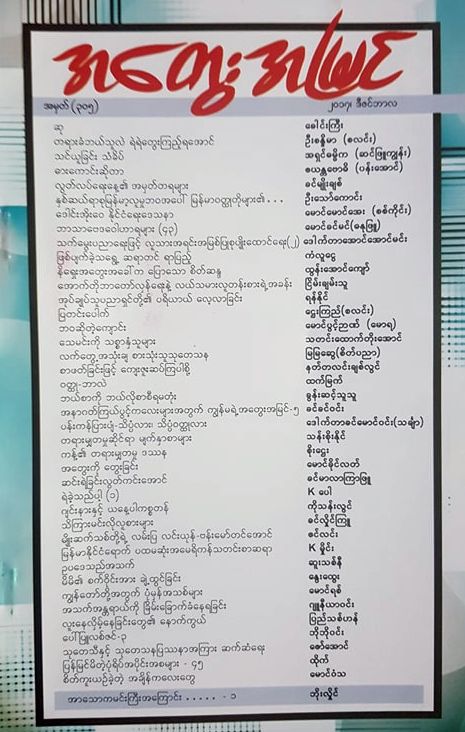 အတွေးအမြင်
အမှတ် (၃၀၅) ၂၀၁၇၊ ဒီဇင်ဘာလ
ဆု ခေါင်းကြီး
တရားခံဘယ်သူလဲ ရဲရဲတွေးကြည့်ရအောင် ဦးစန္ဒိမာ (စလင်း)
သင်ယူခြင်း သံခိပ် အရှင်ဓမ္မိက (ဆင်ဖြူကျွန်း)
ဓားကောင်းဆိုတာ ဇယန္တဗောဓိ (ပန်းအောင်)
လွတ်လပ်ရေးနေ့၏ အမှတ်တရများ ခင်မျိုးချစ်
နှစ်ဆယ်ရာစုမြန်မာ့လူမှုဘဝအပေါ် မြန်မာဝတ္ထုတိုများ၏... ဦးသော်ကောင်း
ဒေါင်းအိုးဝေ နိုင်ငံရေးဒေသနာ မောင်မောင်အေး (စစ်ကိုင်း)
ဘာသာဗေဒဝေါဟာရများ (၄၃) မောင်ခင်မင်(ဓနုဖြူ)
သက်မွေးပညာရေးဖြင့် လူသားအရင်းအမြစ်ပြုစုပျိုးထောင်ရေး(၂) ဒေါက်တာအောင်အောင်မင်း
ဖြစ်ပျက်ခဲ့သရွေ့ ဆရာတင် ရာပြည့် ကံလူငွေ
နိရှေးအတွေးအခေါ်က ပြောသော စိတ်ဆန္ဒ ထွန်းအောင်ကျော်
အောက်တိုဘာတော်လှန်ရေးနဲ့ လယ်သမားလူတန်းစားရဲ့အခန်း ငြိမ်းချမ်းသူ
အုပ်ချုပ်သူပညာရှင်တို့၏ ပရိယာယ် လေ့လာခြင်း ရန်နိုင်
ပြတင်းပေါက် ဌေးကြည်(စလင်း)
ဘဝဆိုတဲ့ကျောင်း မောင်ပွင့်ဉာဏ် (မောရ)
သေမင်းကို သစ္စာနှံသူများ သတင်းထောက်တိုးအောင်
လက်တွေ့အသုံးချ စားသုံးသူသုတေသန မြမြဆွေ(စိတ်ပညာ)
စာဖတ်ခြင်းဖြင့် ကျေးဇူးဆပ်ကြပါစို့ နတ်တလင်းချစ်လွင်
ဝတ္ထု-ဘာလဲ ထက်မြက်
ဘယ်စာကို ဘယ်လိုစာစီရမတုံး စွန်းဆင့်သူသူ
အနာဂတ်ကြယ်ပွင့်ကလေးများအတွက် ကျွန်မရဲ့အတွေးအမြင်-၅ ခင်ခင်ဝင်း
ပန်းကန်ပြားပျံ-သိပ္ပံလား၊ သိပ္ပံဝတ္ထုလား ဒေါက်တာခင်မောင်ဝင်း(သင်္ချာ)
တရားမျှတမှုဆိုင်ရာ မျက်နှာစာများ သန်းစိုးနိုင်
ကန့်၏ တရားမျှတမှု ဒဿန စိုးဌေး
အတွေးကို တွေးခြင်း မောင်ခိုင်လတ်
ဆင်းရဲခြင်းလွတ်ကင်းအောင် ခင်မာလာကြာဖြူ
ရဲခဲ့သည်ပါ့ (၁) K ပေါ
ဂျင်းနားနှင့် ယနေ့ပါကစ္စတန် ကိုသန်းလွင်
သိကြားမင်းလိုလူစားများ ခင်လှိုင်ကြူ
မျိုးဆက်သစ်တို့ရဲ့ လမ်းပြ လင်းယုန်-ဗန်းမော်တင်အောင် ခင်လင်း
မြန်မာနိုင်ငံရောက် ပထမဆုံးအမေရိကန်သတင်းစာဆရာ K မှိုင်း
ဥပဒေသည်အသက် ဆူးသစ်နီ
မိမိ၏ စက်ဝိုင်းအား ချဲ့ထွင်ခြင်း နွေးထွေး
ကျွန်တော်တို့အတွက် ပုံမှန်အသစ်များ မောင်ရစ်
အသက်အန္တရာယ်ကို ငြိမ်းခြောက်ခံနေရခြင်း ဂျူနီယာဝင်း
လူးနေလှိမ့်နေခြင်းတွေ၏ နောက်ကွယ် ပြည်သစ်ဟန်
ပေါ်ပြူလစ်ဇင်-၃ ဘိုဘိုဝင်း
သုတေသီနှင့် သုတေသနပြဿနာအကြား ဆက်ဆံရေး ဇော်အောင်
ပြန်မြင်မိတဲ့ပုံရိပ်အပိုင်းအစများ - ၄၅ ထိုက်
စိတ်ကူးယဉ်ခဲ့တဲ့ အချိန်ကလေးတွေ မောင်ဝံသ
အသောကမင်းကြီးအကြောင်း ..... - ၁ ဘိုးလှိုင်